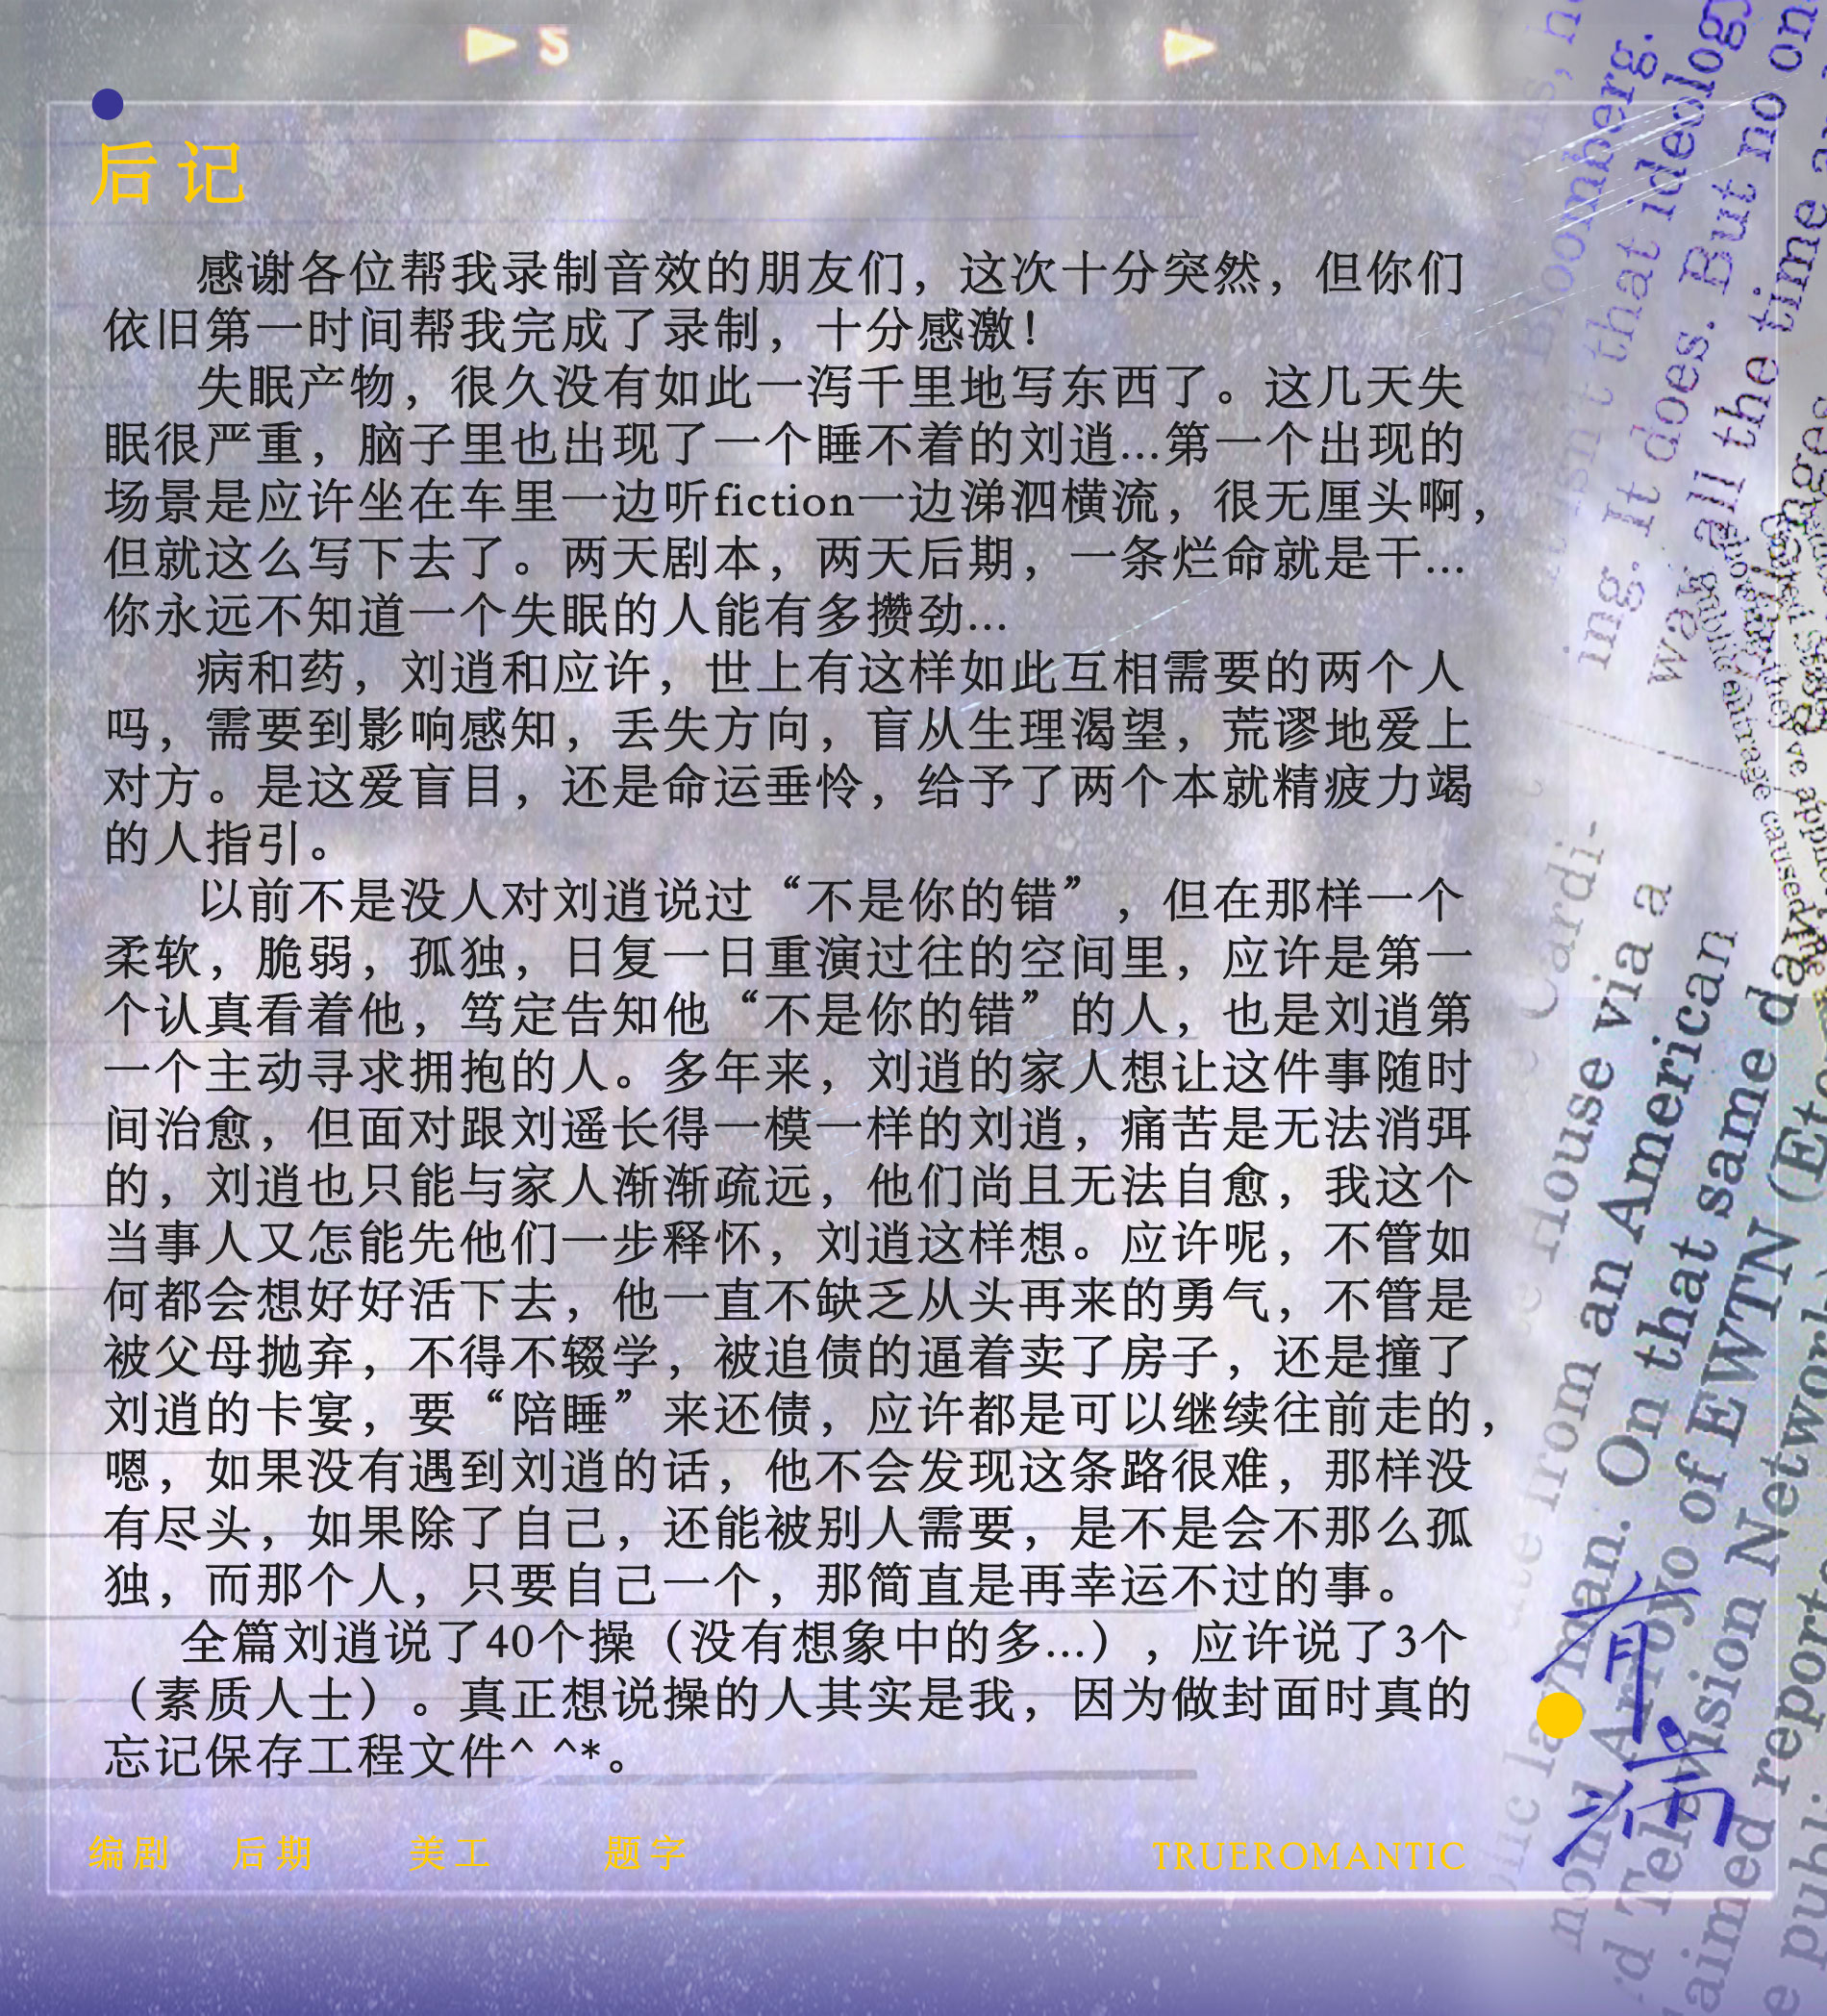 S
后记
感谢各位帮我录制音效的朋友们，这次十分突然，但你们
依旧第一时间帮我完成了录制，十分感激！
失眠产物，很久没有如此一泻千里地写东西了。这几天失
眠很严重，脑子里也出现了一个睡不着的刘逍...第一个出现的
场景是应许坐在车里一边听fiction一边涕泗横流，很无厘头啊，
但就这么写下去了。两天剧本，两天后期，一条烂命就是干...
你永远不知道一个失眠的人能有多攒劲...
病和药，刘逍和应许，世上有这样如此互相需要的两个人
吗，需要到影响感知，丢失方向，盲从生理渴望，荒谬地爱上
对方。是这爱盲目，还是命运垂怜，给予了两个本就精疲力竭
的人指引。
以前不是没人对刘逍说过“不是你的错”，但在那样一个
柔软，脆弱，孤独，日复一日重演过往的空间里，应许是第一
个认真看着他，笃定告知他“不是你的错”的人，也是刘逍第
一个主动寻求拥抱的人。多年来，刘逍的家人想让这件事随时
间治愈，但面对跟刘遥长得一模一样的刘逍，痛苦是无法消弭
的，刘逍也只能与家人渐渐疏远，他们尚且无法自愈，我这个
当事人又怎能先他们一步释怀，刘逍这样想。应许呢，不管如
何都会想好好活下去，他一直不缺乏从头再来的勇气，不管是
被父母抛弃，不得不辍学，被追债的逼着卖了房子，还是撞了
刘逍的卡宴，要“陪睡”来还债，应许都是可以继续往前走的，
嗯，如果没有遇到刘逍的话，他不会发现这条路很难，那样没
有尽头，如果除了自己，还能被别人需要，是不是会不那么孤
独，而那个人，只要自己一个，那简直是再幸运不过的事。
全篇刘逍说了40个操（没有想象中的多...），应许说了3个
（素质人士）。真正想说操的人其实是我，因为做封面时真的
忘记保存工程文件^ ^*。
编剧 后期 美工 题字 TRUEROMANTIC
有病
Bloomberg.
that ideology
ing. It does. But no on
was all the time a
Cardi-
House via a
from an American
layman. On that same day
mond Arroyo of EWTN (Eter
Television Network)
aimed reporte
e publi